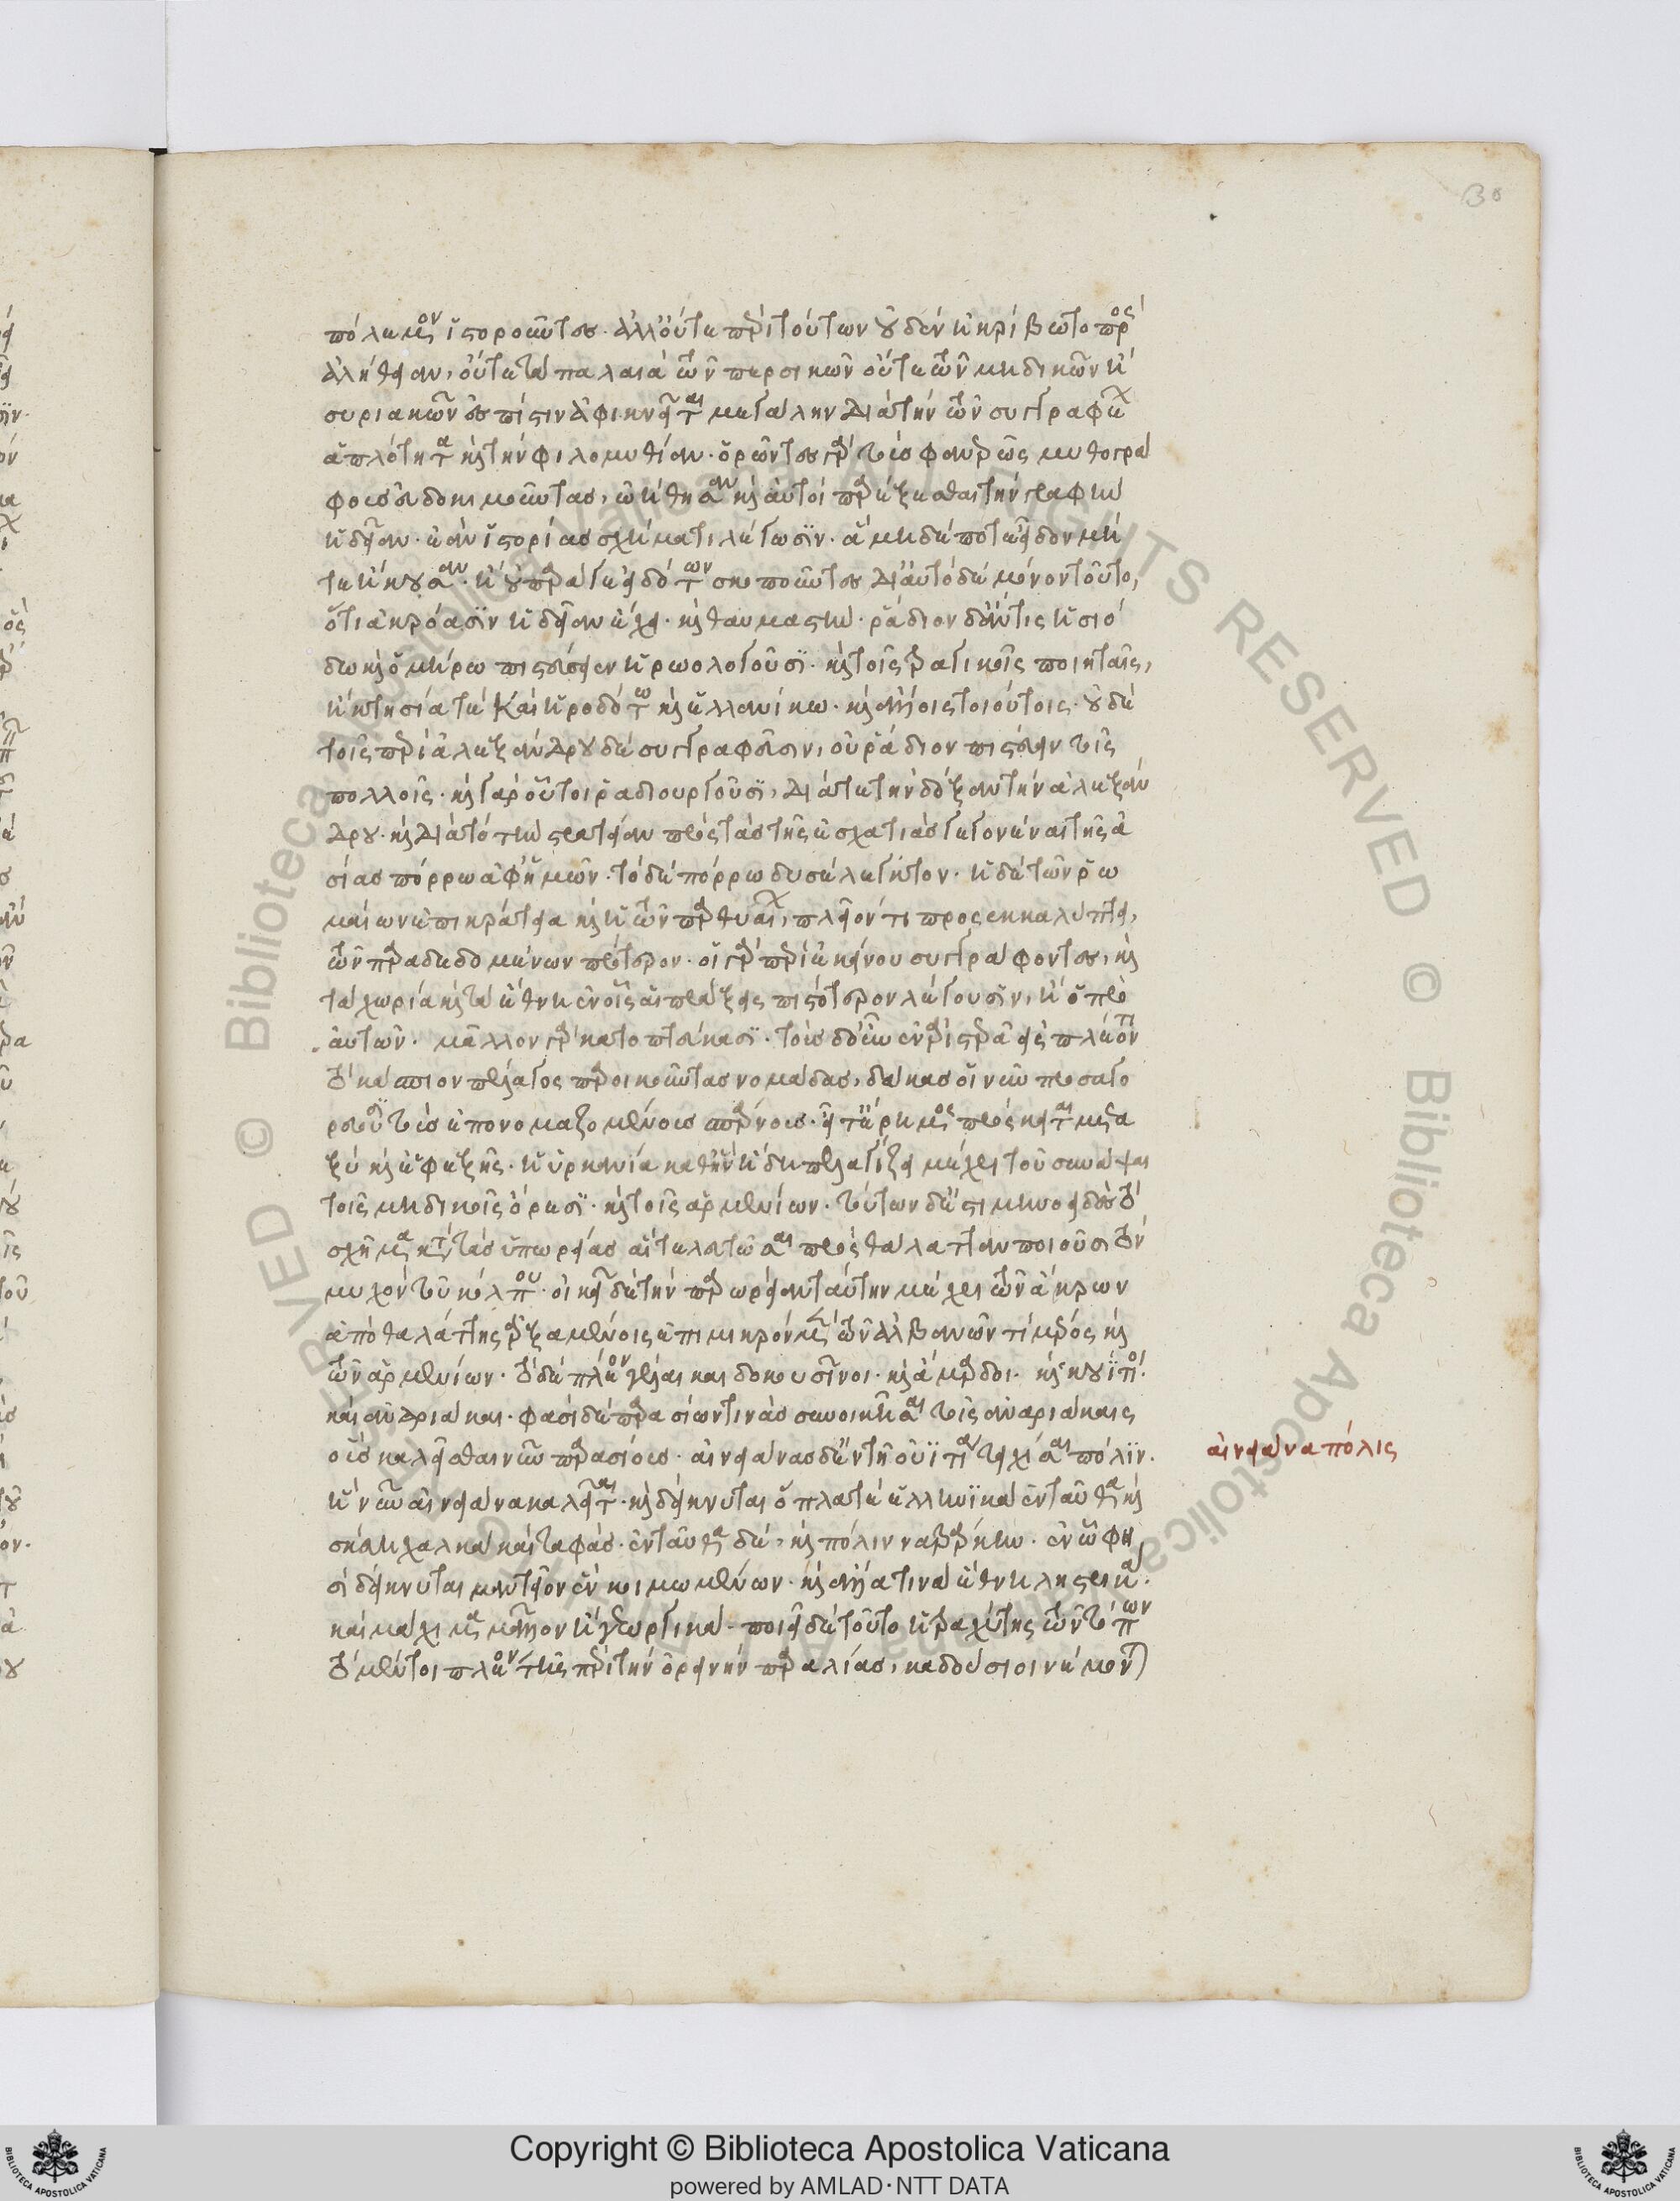 πόλεμον ἱστοροῦντες· ἀλλ' οὔτε περὶ τούτων οὐδὲν ἠκρίβωτο πρὸς
ἀλήθειαν, οὔτε τὰ παλαιὰ τῶν περσικῶν οὔτε τῶν μηδικῶν ἢ
συριακῶν ἐς πίστιν ἀφικνεῖται μεγάλην διὰ τὴν τῶν συγγραφέων
ἁπλότητα καὶ τὴν φιλομυθίαν· ὁρῶντες γὰρ τοὺς φανερῶς μυθογρά
φους εὐδοκιμοῦντας, ὠήθησαν καὶ αὐτοὶ παρέξεσθαι τὴν γραφὴν
ἡδεῖαν· ἐὰν ἱστορίας σχήματι λέγωσιν· ἃ μηδέποτε εἶδον μή
τε ἤκουσαν· ἢ οὐ παρά γε εἰδότων σκοποῦντες δι' αὐτὸ δὲ μόνον τοῦτο,
ὅτι ἀκρόασιν ἡδεῖαν ἔχει· καὶ θαυμαστήν· ῥάδιον δ' ἄν τις ἡσιό
δω καὶ ὁμήρω πιστεύσειεν ἡρωολογοῦσι· καὶ τοῖς τραγικοῖς ποιηταῖς,
ἢ κτησία τε καὶ ἡροδότω καὶ ἑλλανίκω· καὶ ἄλλοις τοιούτοις· οὐδὲ
τοῖς περὶ ἀλεξάνδρου δὲ συγγράψασιν, οὐ ῥάδιον πιστεύειν τοῖς
πολλοῖς· καὶ γὰρ οὗτοι ῥαδιουργοῦσι, διά τε τὴν δόξαν τὴν ἀλεξάν
δρου· καὶ διὰ τὸ τὴν στρατείαν πρὸς τὰς τῆς ἐσχατιὰς γεγονέναι τῆς ἀ
σίας πόρρω ἀφ' ἡμῶν· τὸ δὲ πόρρω δυσέλεγκτον· ἡ δὲ τῶν ῥω
μαίων ἐπικράτεια καὶ ἡ τῶν παρθυαίων, πλεῖόν τι προσεκκαλύπτει,
τῶν παραδεδομένων πρότερον· οἱ γὰρ περὶ ἐκείνου συγγράφοντες, καὶ
τὰ χωρία καὶ τὰ ἔθνη ἐν οἷς αἱ πράξεις πιστότερον λέγουσιν, ἢ οἱ πρὸ
αὐτῶν· μᾶλλον γὰρ κατοπτεύκασι· τοὺς δ' οὖν ἐν ἀριστερᾷ εἰσπλέοντι
τὸ κάσπιον πέλαγος παροικοῦντας νομάδας, δάκας οἱ νῦν προσαγο
ρεύουσι τοὺς ἐπονομαζομένους απάρνους· εἶτ' ἔρημος πρόκειται μετα
ξύ καὶ ἐφεξῆς· ἡ ὑρκανία καθ' ἣν ἤδη πελαγίζει μέχρι τοῦ συνάψαι
τοῖς μηδικοῖς ὄρεσι· καὶ τοῖς ἀρμενίων· τούτων δ' ἐστὶ μηνοειδὲς τὸ
σχῆμα κατὰ τὰς ὑπωρείας αἳ τελευτῶσαι πρὸς θάλατταν ποιοῦσι τὸν
μυχὸν τοῦ κόλπου· οἰκεῖ δὲ τὴν παρωρείαν ταύτην μέχρι τῶν ἄκρων
ἀπὸ θαλάττης ἀρξαμένοις ἐπὶ μικρὸν μὲν τῶν ἀλβανῶν τὶ μέρος καὶ
τῶν ἀρμενίων· τὸ δὲ πλέον γέλαι καὶ δοκουσῖνοι· καὶ ἄμαρδοι· καὶ κουίτιοι·
καὶ ἀνδριάκαι· φασὶ δὲ παρασίων τινὰς συνοικῆσαι τοῖς ἀναριάκαις
οὓς καλεῖσθαι νῦν παρασίους· αἰνειάνας δ' ἐν τῇ οὐιτίᾳ τειχίσαι πόλιν·
ἣν νῦν αἰνειάνα καλεῖται· καὶ δείκνυται ὅπλα τὲ ἑλληνικὰ ἐνταῦθα καὶ
σκεύη χαλκὰ καὶ ταφάς· ἐνταῦθα δὲ, καὶ πόλιν ναβαρκήνω· ἐν ᾧ φη
σὶ δείκνυται μαντεῖον ἐγκοιμωμένων· καὶ ἄλλα τινὰ ἔθνη λῃστρικά·
καὶ μάχιμα μᾶλλον ἢ γεωργικὰ· ποιεῖ δὲ τοῦτο ἡ τραχύτης τῶν τόπων
τὸ μέντοι πλέον τῆς περὶ τὴν ὀρεινὴν παραλίας, καδούσιοι νέμονται
αἰνειάνα πόλις
Copyright © Biblioteca Apostolica Vaticana
powered by AMLAD·NTT DATA